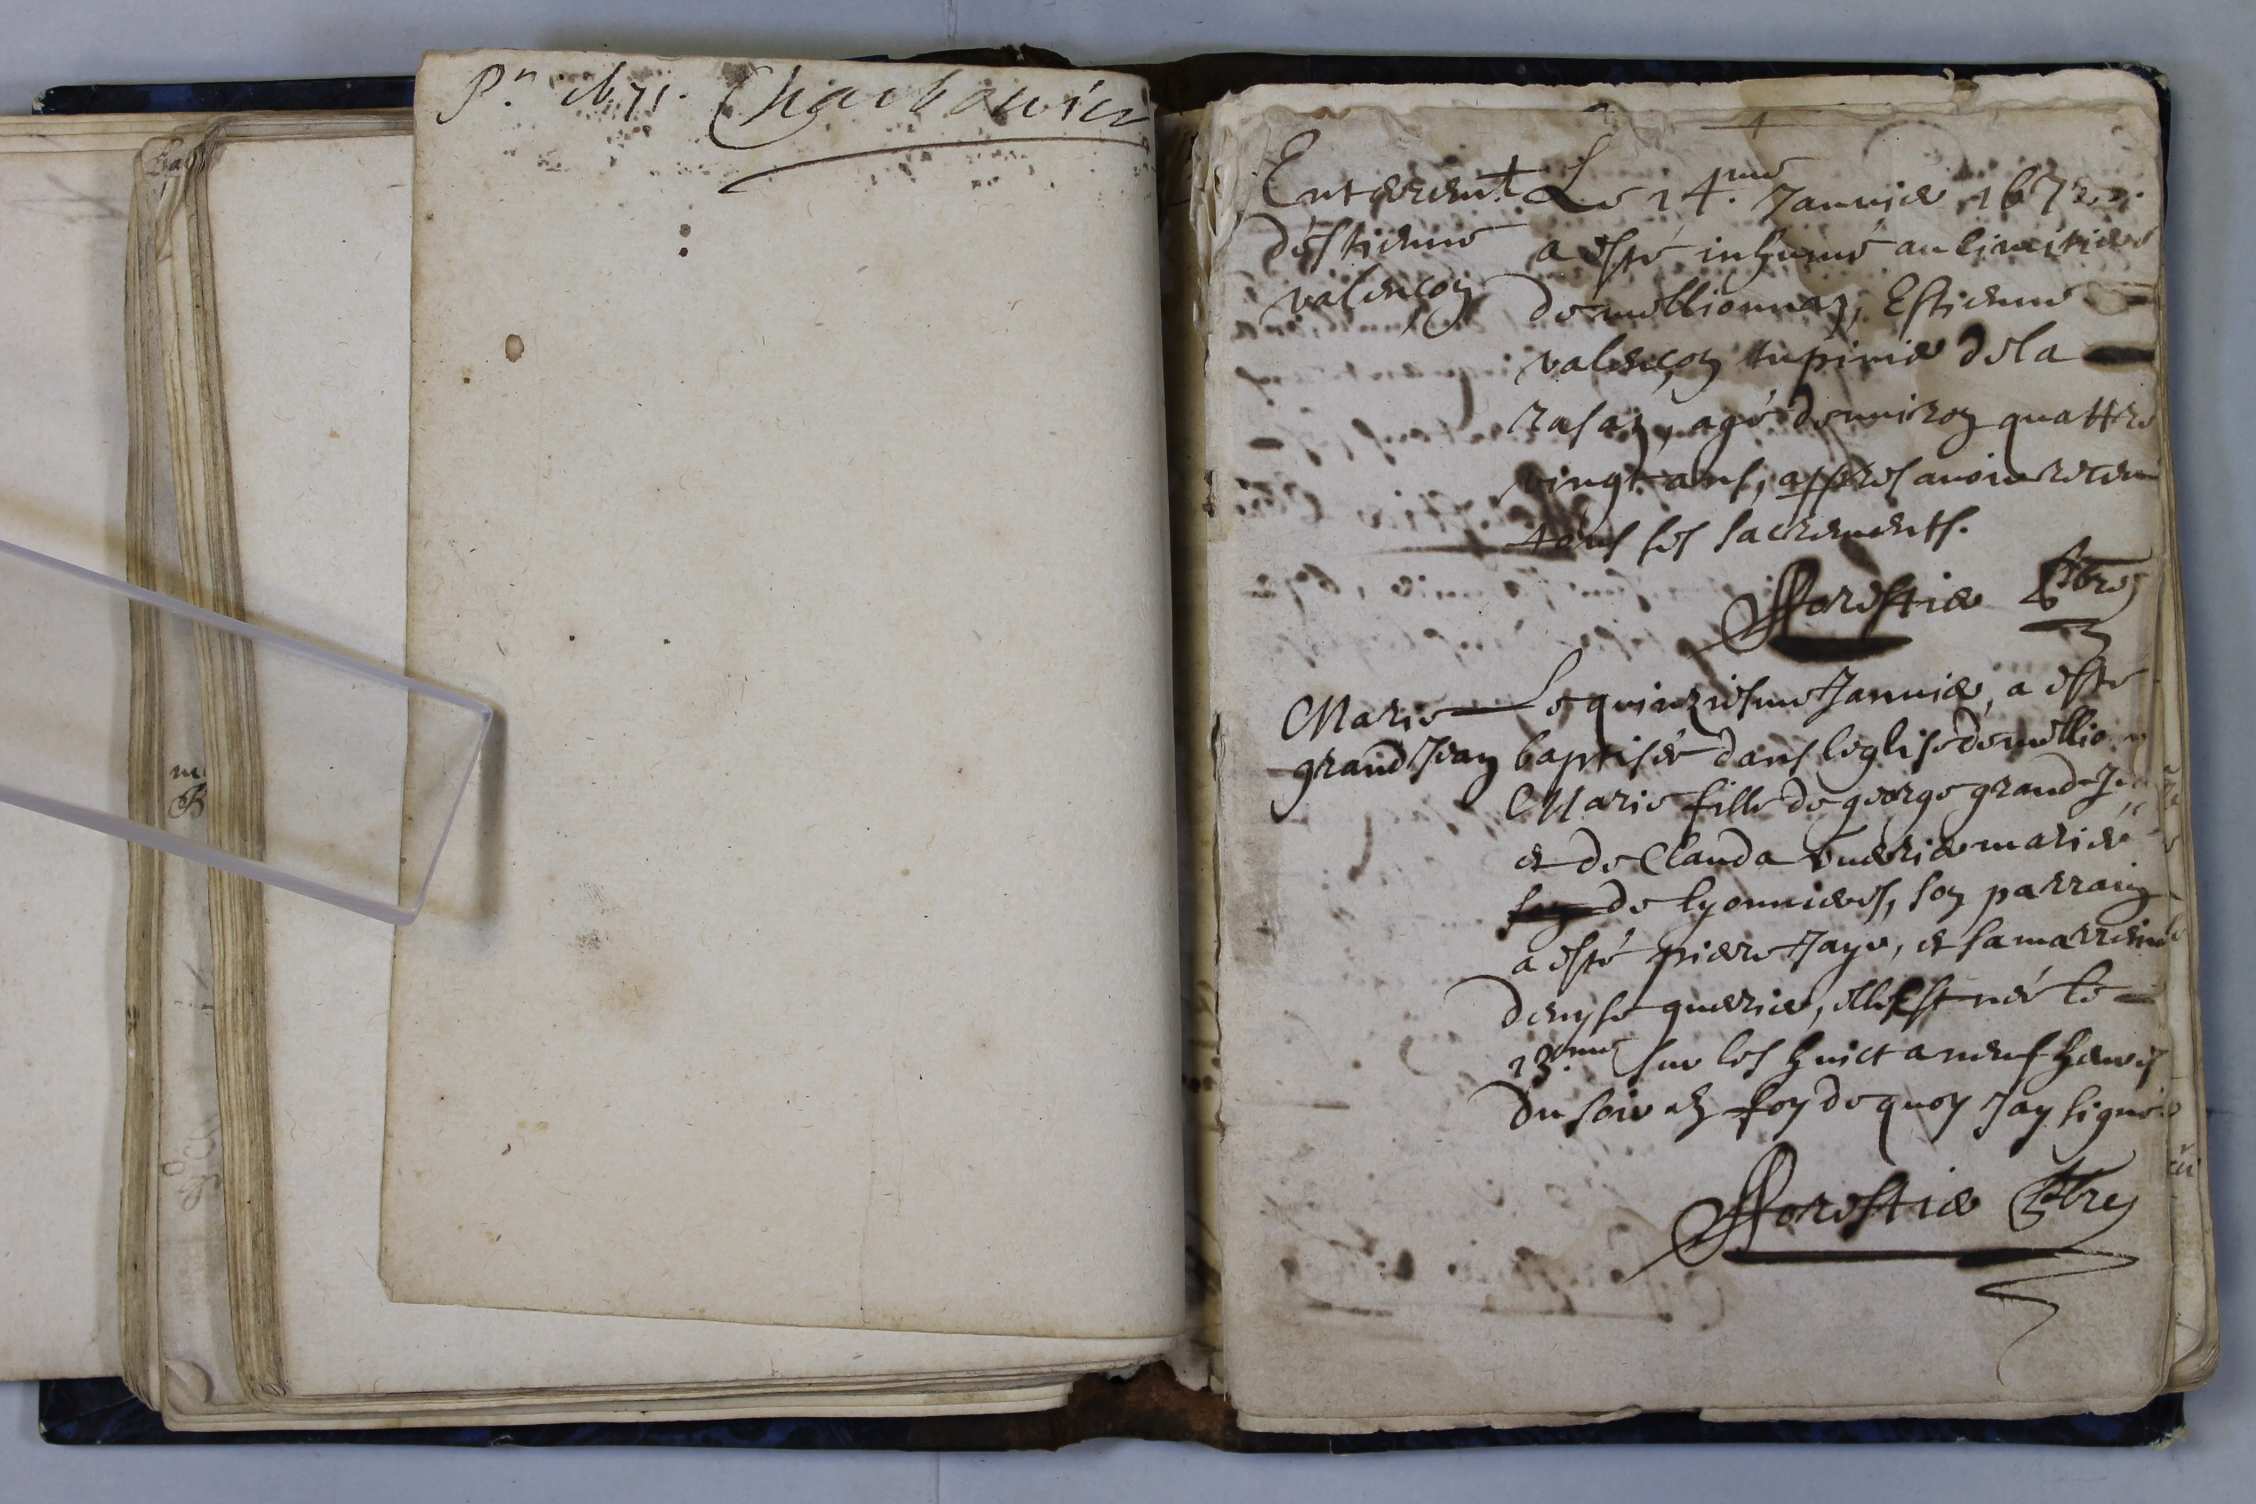 Pr 1671. Charbonnier
Enterem.t
d'estienne
valençon
Le 14.me Januier 1672.
a esté inhumé au Cimitiere
de mellionnaz, Estienne
valençon tupinier de la
rasaz, agé d'enuiron quattre
vingt ans, appres auoir receu
tous ses sacrements.
fforestier ptre
Marie
grand Jean
Le quinziesme Januier, a esté
baptisée dans leglise de mellion
Marie fille de george grand Je
et de Clauda querier mariés
de lyonnieres, son parrain
a esté piere Jayr, et sa marreine
denyse querier, elle est née le
13.me sur les huict a neuf heures
du soir en foy de quoy Jay signé
fforestier ptre